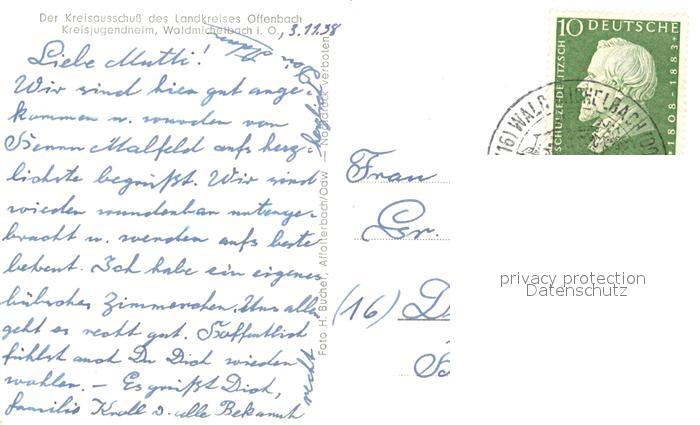 Der Kreisausschuß des Landkreises Offenbach
Kreisjugendheim, Waldmichelbach i. O., 3.11.58
Liebe Mutti!
Wir sind hier gut ange-
kommen u. wurden von
Herrn Malfeld aufs herz-
lichste begrüßt. Wir sind
wieder wunderbar unterge-
bracht u. werden aufs beste
betreut. Ich habe ein eigenes
hübsches Zimmerchen. Uns allen
geht es recht gut. Hoffentlich
fühlst auch Du Dich wieder
wohler. – Es grüßt Dich,
Familie Kroll u. alle Bekannt
recht
herzlich
Foto H. Bucher, Affolterbach/Odw. — Nachdruck verboten
Frau
Gr.
(16) D
10 DEUTSCHE
SCHULZE-DELITZSCH
1808-1883
(16) WALD-MICHELBACH (OD
privacy protection
Datenschutz